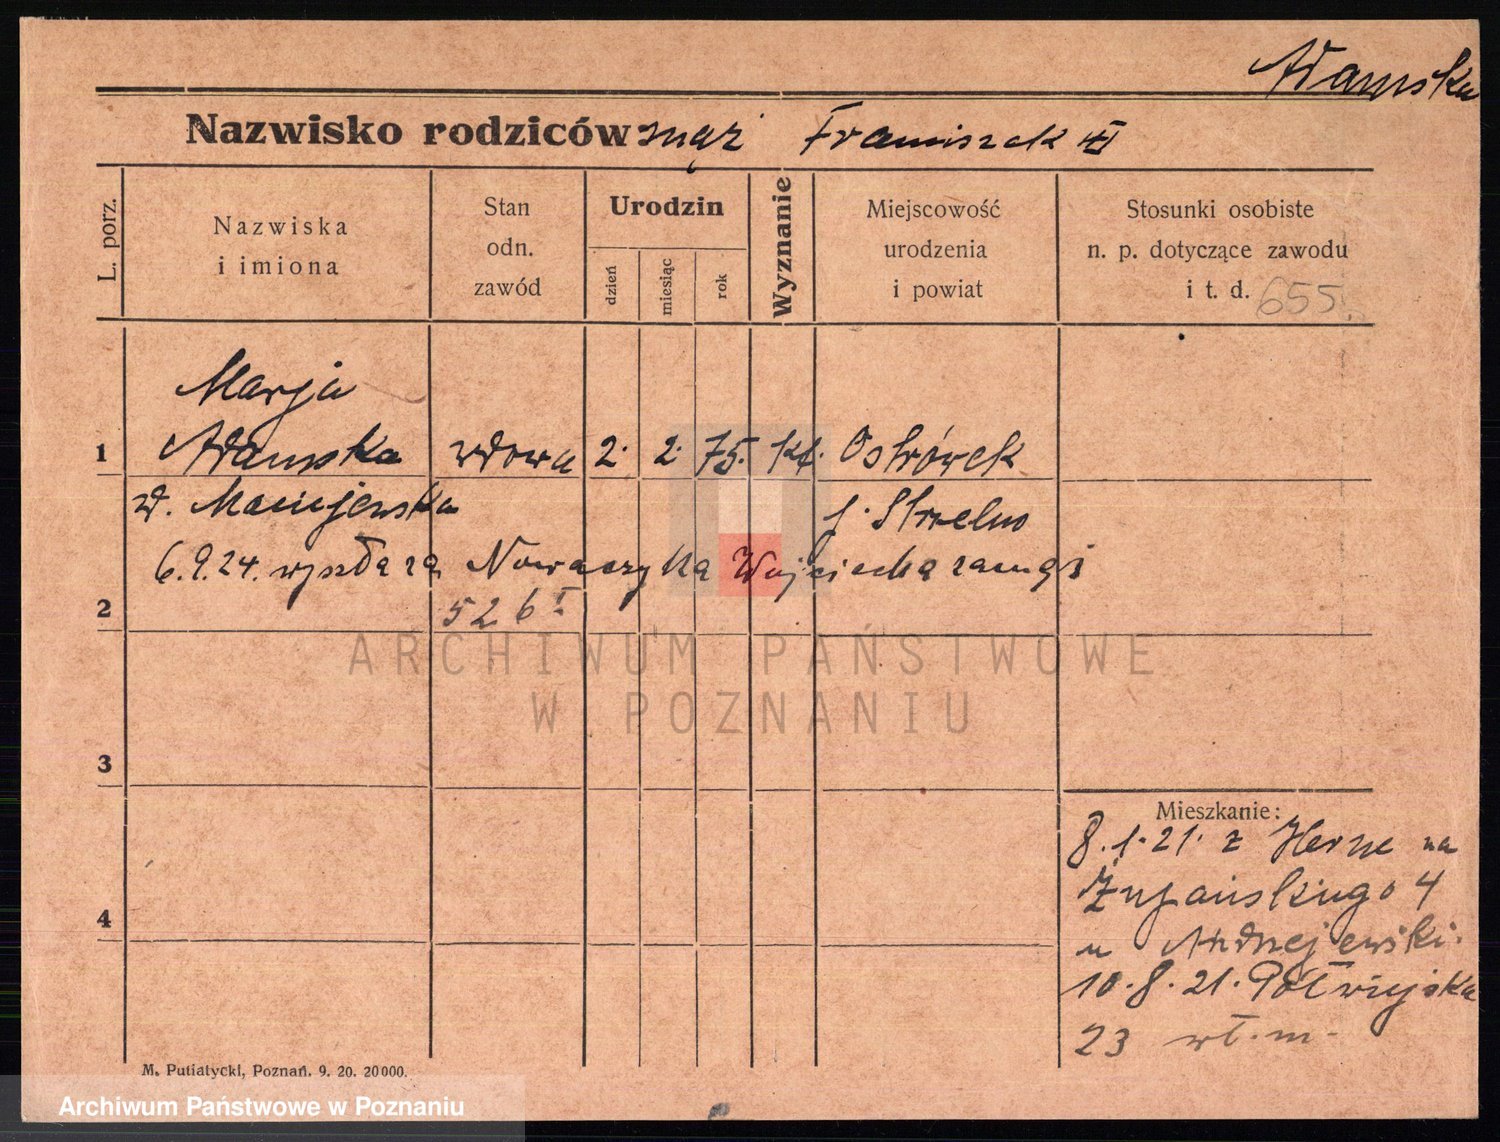 Adamska
Nazwisko rodziców mąż Franciszek VI
L. porz.
Nazwiska
i imiona
Stan
odn.
zawód
Urodzin
dzień
miesiąc
rok
Wyznanie
Miejscowość
urodzenia
i powiat
Stosunki osobiste
n. p. dotyczące zawodu
i t. d. 655
Marja
1 Adamska wdowa 2. 2. 75. kt. Ostrówek
d. Maciejewska p. Strzelno
6.9.24. wyszła za Nowaczyka Wojciecha zamąż
2 526 I
ARCHIWUM PAŃSTWOWE
W POZNANIU
3
Mieszkanie:
8.1.21. z Herne na
Żupańskiego 4
4 u Andrzejewski.
10.8.21. Półwiejska
23 wł. m.
M. Putiatycki, Poznań. 9. 20. 20000.
Archiwum Państwowe w Poznaniu